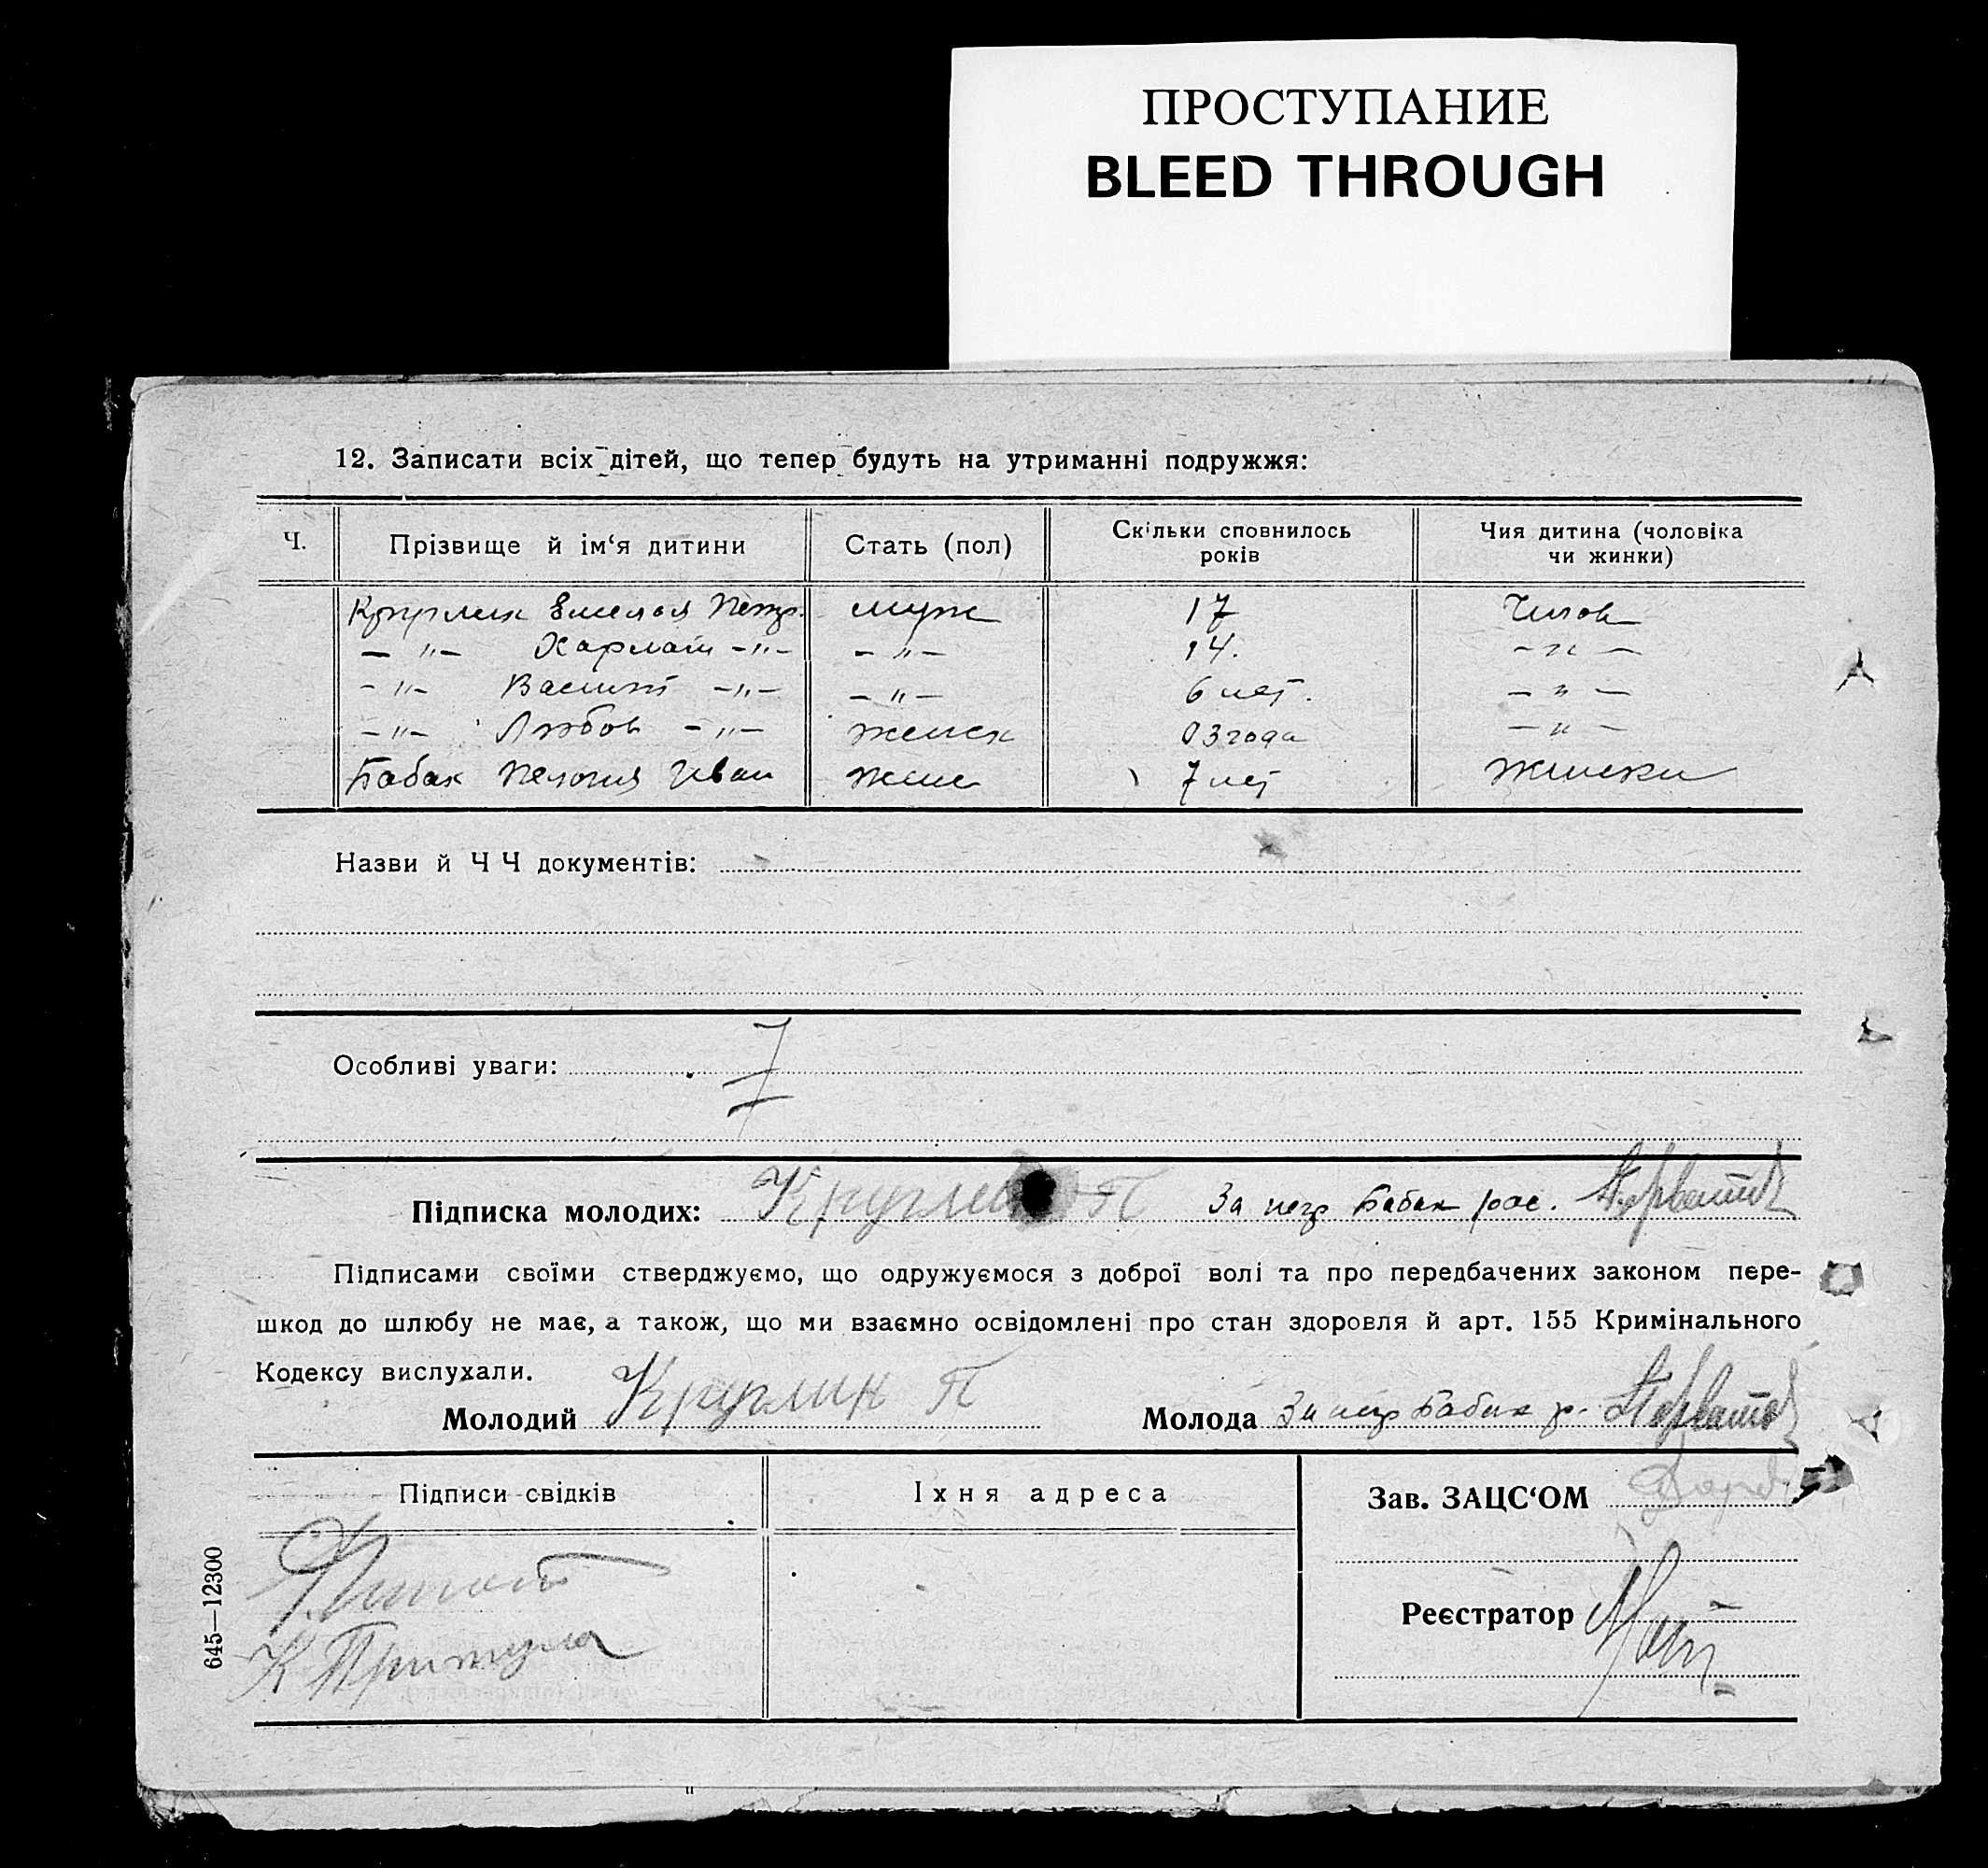 ПРОСТУПАНИЕ
BLEED THROUGH
12. Записати всіх дітей, що тепер будуть на утриманні подружжя:
Ч. Прізвище й ім‘я дитини Стать (пол) Скільки сповнилось років Чия дитина (чоловіка чи жинки)
Круглик Петр. муж 17 Чилов
— „ — — „ — — „ — 14. — „ —
— „ — Василий — „ — — „ — 6 лет. — „ —
— „ — Любов — „ — женск 03 года — „ —
Бабак Пелогия Иван жен 7 лет Жинки
Назви й Ч Ч документів:
Особливі уваги:
Підписка молодих: Круглик П За негр Бабак рос.
Підписами своїми стверджуємо, що одружуємося з доброї волі та про передбачених законом пере-
шкод до шлюбу не має, а також, що ми взаємно освідомлені про стан здоровля й арт. 155 Кримінального
Кодексу вислухали.
Молодий Круглик П Молода За негр Бабак р.
Підписи свідків Їхня адреса Зав. ЗАЦС‘ОМ
К Притула
Реєстратор
645—12300